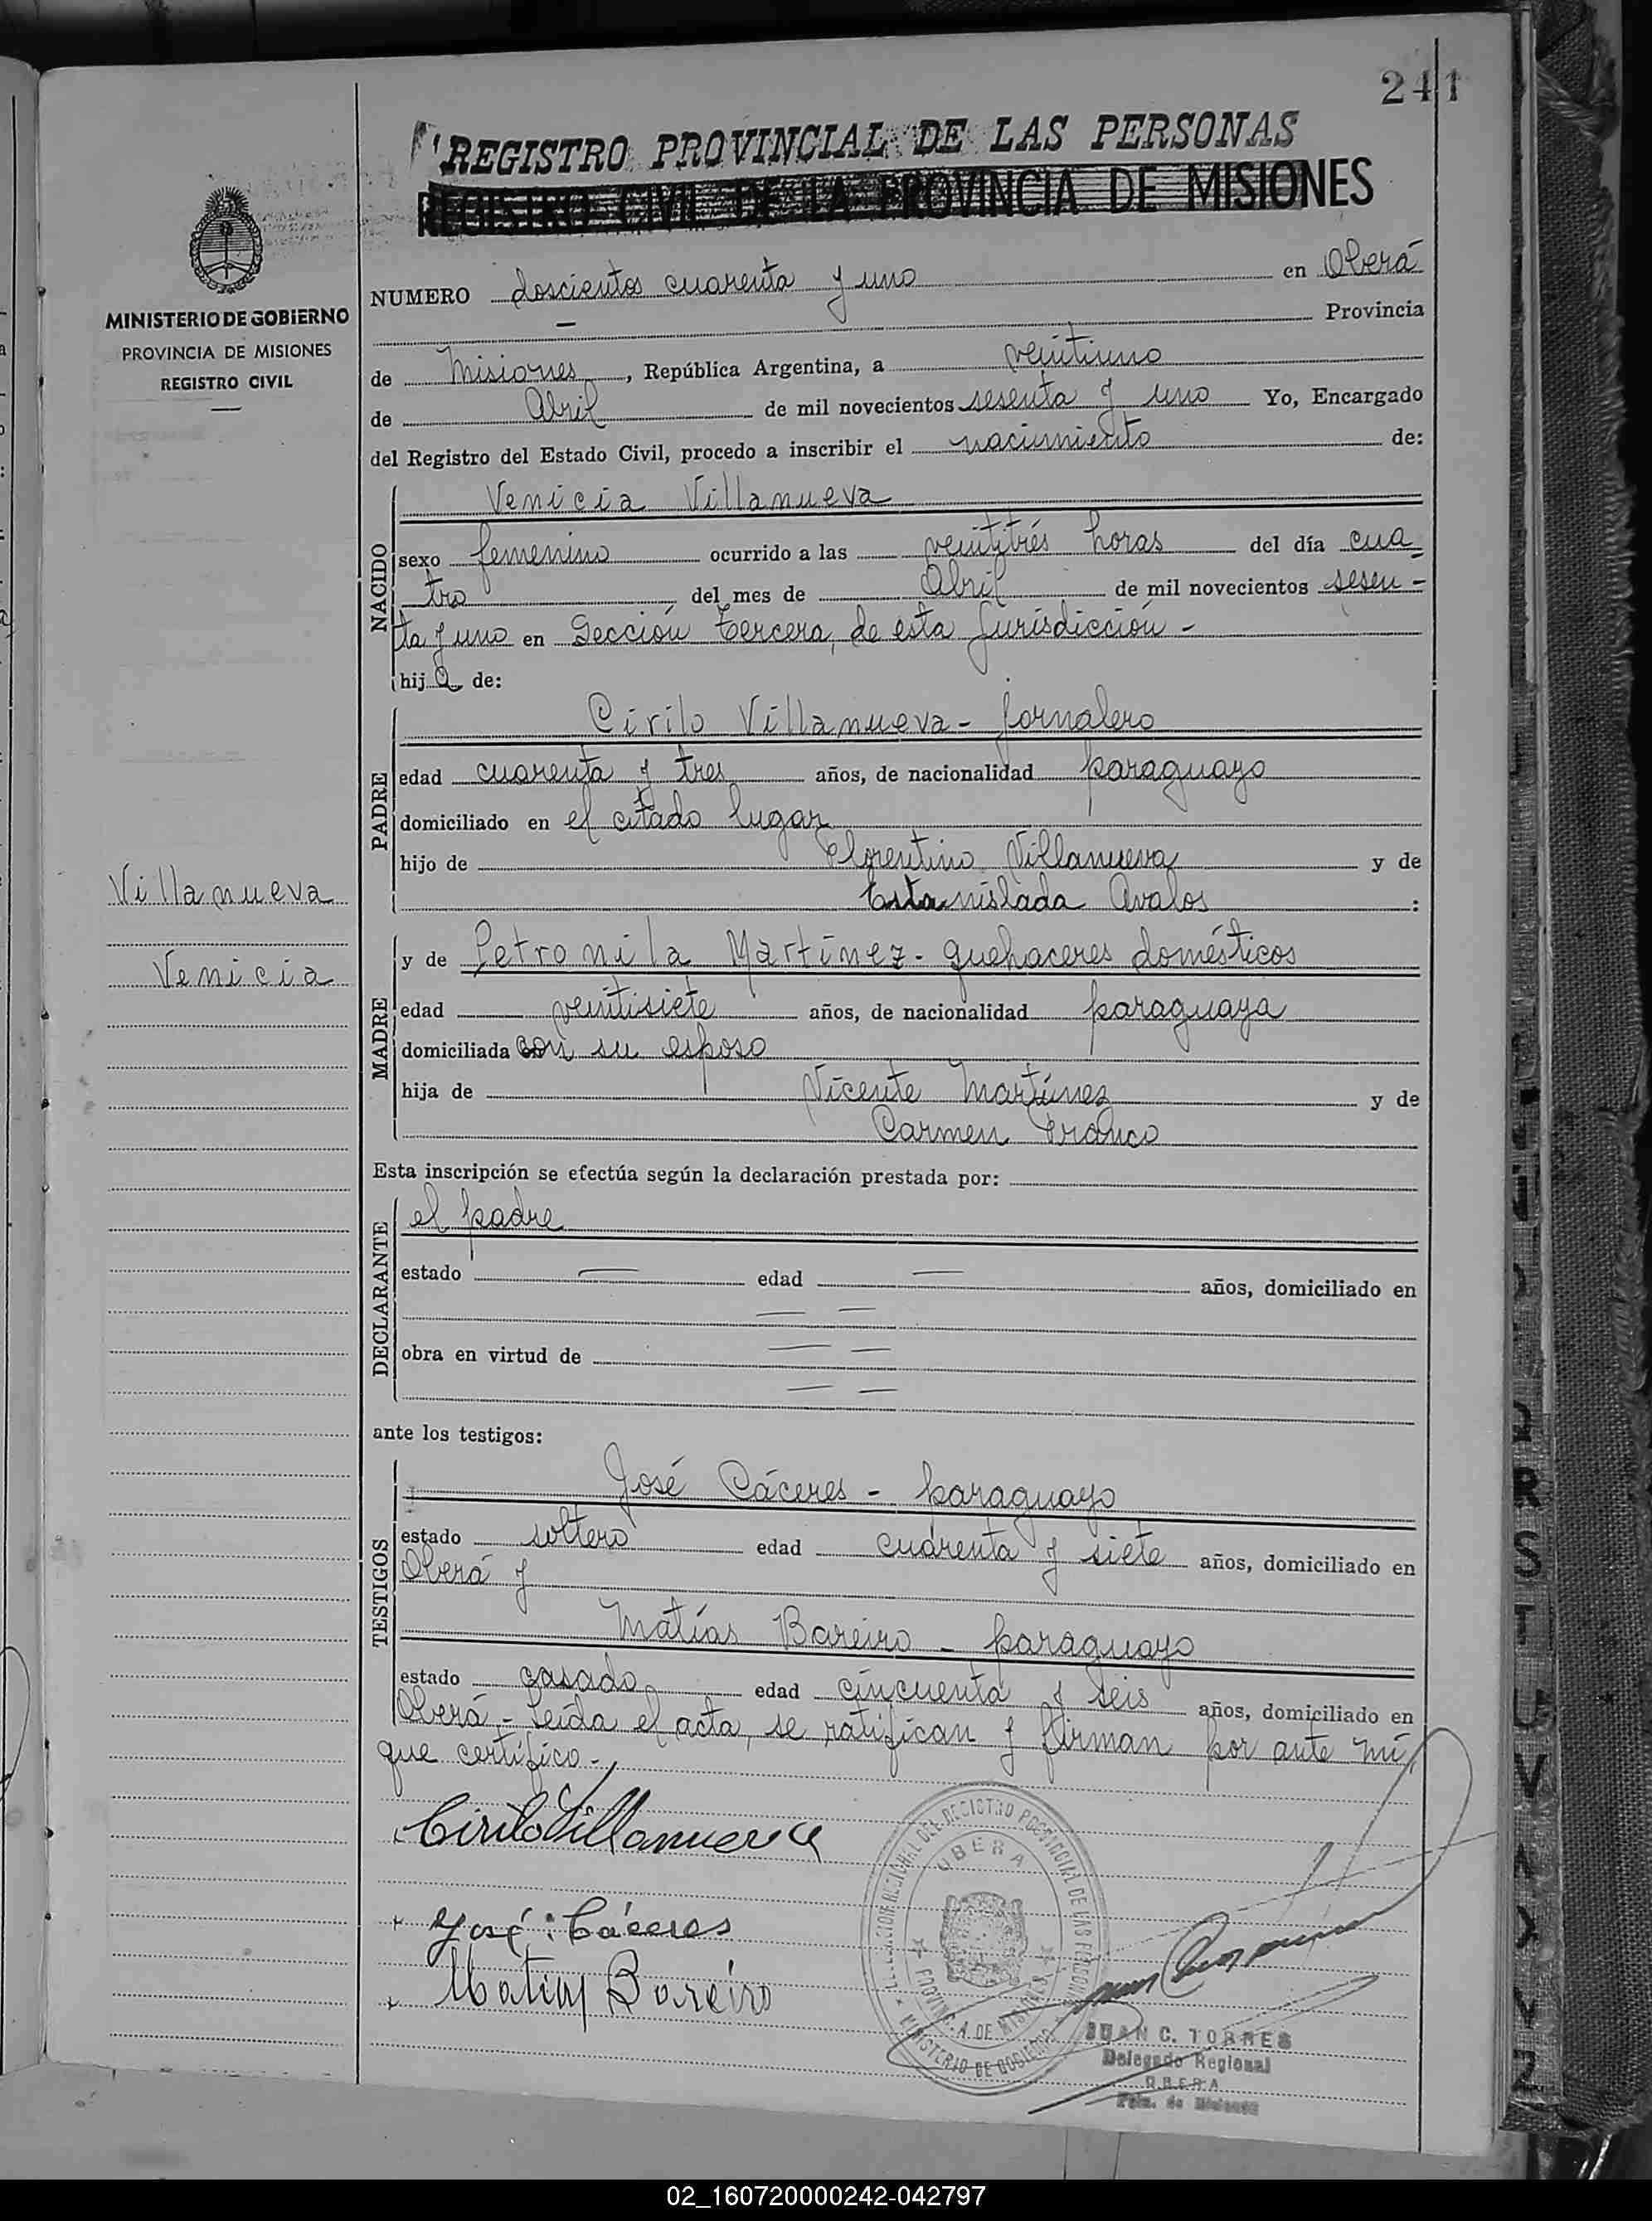 241
REGISTRO PROVINCIAL DE LAS PERSONAS
REGISTRO CIVIL DE LA PROVINCIA DE MISIONES
MINISTERIO DE GOBIERNO
PROVINCIA DE MISIONES
REGISTRO CIVIL
Villanueva
Venicia
NUMERO doscientos cuarenta y uno en Oberá
Provincia
de Misiones, República Argentina, a veintiuno
de Abril de mil novecientos sesenta y uno Yo, Encargado
del Registro del Estado Civil, procedo a inscribir el nacimiento de:
NACIDO
Venicia Villanueva
sexo femenino ocurrido a las veintitrés horas del día cua-
tro del mes de Abril de mil novecientos sesen-
ta y uno en Sección tercera, de esta jurisdicción -
hija de:
PADRE
Cirilo Villanueva - jornalero
edad cuarenta y tres años, de nacionalidad paraguayo
domiciliado en el citado lugar
hijo de Florentino Villanueva y de
Estanislada Avalos :
MADRE
y de Petronila Martínez - quehaceres domésticos
edad veintisiete años, de nacionalidad paraguaya
domiciliada con su esposo
hija de Vicente Martínez y de
Carmen Franco
Esta inscripción se efectúa según la declaración prestada por:
DECLARANTE
el padre
estado — edad — años, domiciliado en
— —
obra en virtud de — —
— —
ante los testigos:
TESTIGOS
José Cáceres - paraguayo
estado soltero edad cuarenta y siete años, domiciliado en
Oberá y
Matías Bareiro - paraguayo
estado casado edad cincuenta y seis años, domiciliado en
Oberá - Leída el acta, se ratifican y firman por ante mí,
que certifico -
Cirilo Villanueva
José Cáceres
Matias Bareiro
DELEGACION REGIONAL DEL REGISTRO PROVINCIAL DE LAS PERSONAS
OBERA
PROVINCIA DE MISIONES
MINISTERIO DE GOBIERNO
JUAN C. TORRES
Delegado Regional
OBERA
Pcia. de Misiones
R
S
T
U
V
X
Y
Z
02_160720000242-042797